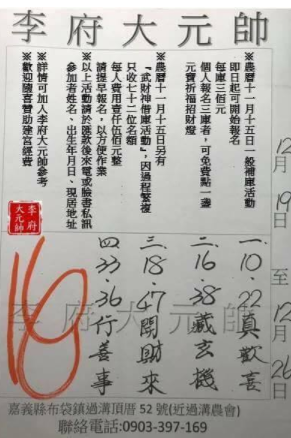 李府大元帥
※農曆十一月十五日一般補庫活動
即日起可開始報名
每庫三佰元
個人報名三庫者，可免費點一盞
元寶祈福招財燈
※農曆十一月十五日另有
『武財神借庫活動』，因過程繁複
只收七十二位名額
每人費用壹仟伍佰元整
請提早報名，以方便作業
※以上活動請於匯款後來電或臉書私訊
參加者姓名、出生年月日、現居地址
※詳情可加入李府大元帥參考
※歡迎隨喜贊助建宮經費
李府
大元帥
12月19日至12月26日
一 10.22真歡喜
二 16.38藏玄機
三 18.47開財來
四 33.36行善事
16
李府大元帥
嘉義縣布袋鎮過溝頂厝 52 號(近過溝農會)
聯絡電話:0903-397-169